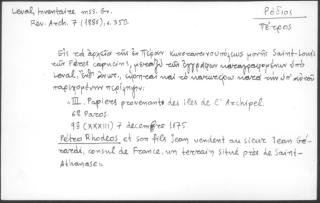 Laval, Inventaire mss. Gr.
Rev. Arch. 7 (1886), σ. 350.
Ρόδιος
Πέτρος
Εἰς τὰ ἀρχεῖα τῆς ἐν Πέραν Κωνσταντινουπόλεως μονῆς Saint-Louis
τῶν Pères capucins, μεταξὺ τῶν ἐγγράφων καταγραφομένων ὑπὸ
Laval, καὶ τὸ κατωτέρω κατὰ τὴν ὑπ' αὐτοῦ
παρεχομένην περίληψιν:
"III. Papiers provenants des îles de l'Archipel.
6º Paros.
9º (XXXIII) 7 décembre 1675.
Pétro Rhodéos et son fils Jean vendent au sieur Jean Gé-
rardi, consul de France, un terrain situé près de Saint-
Athanase."